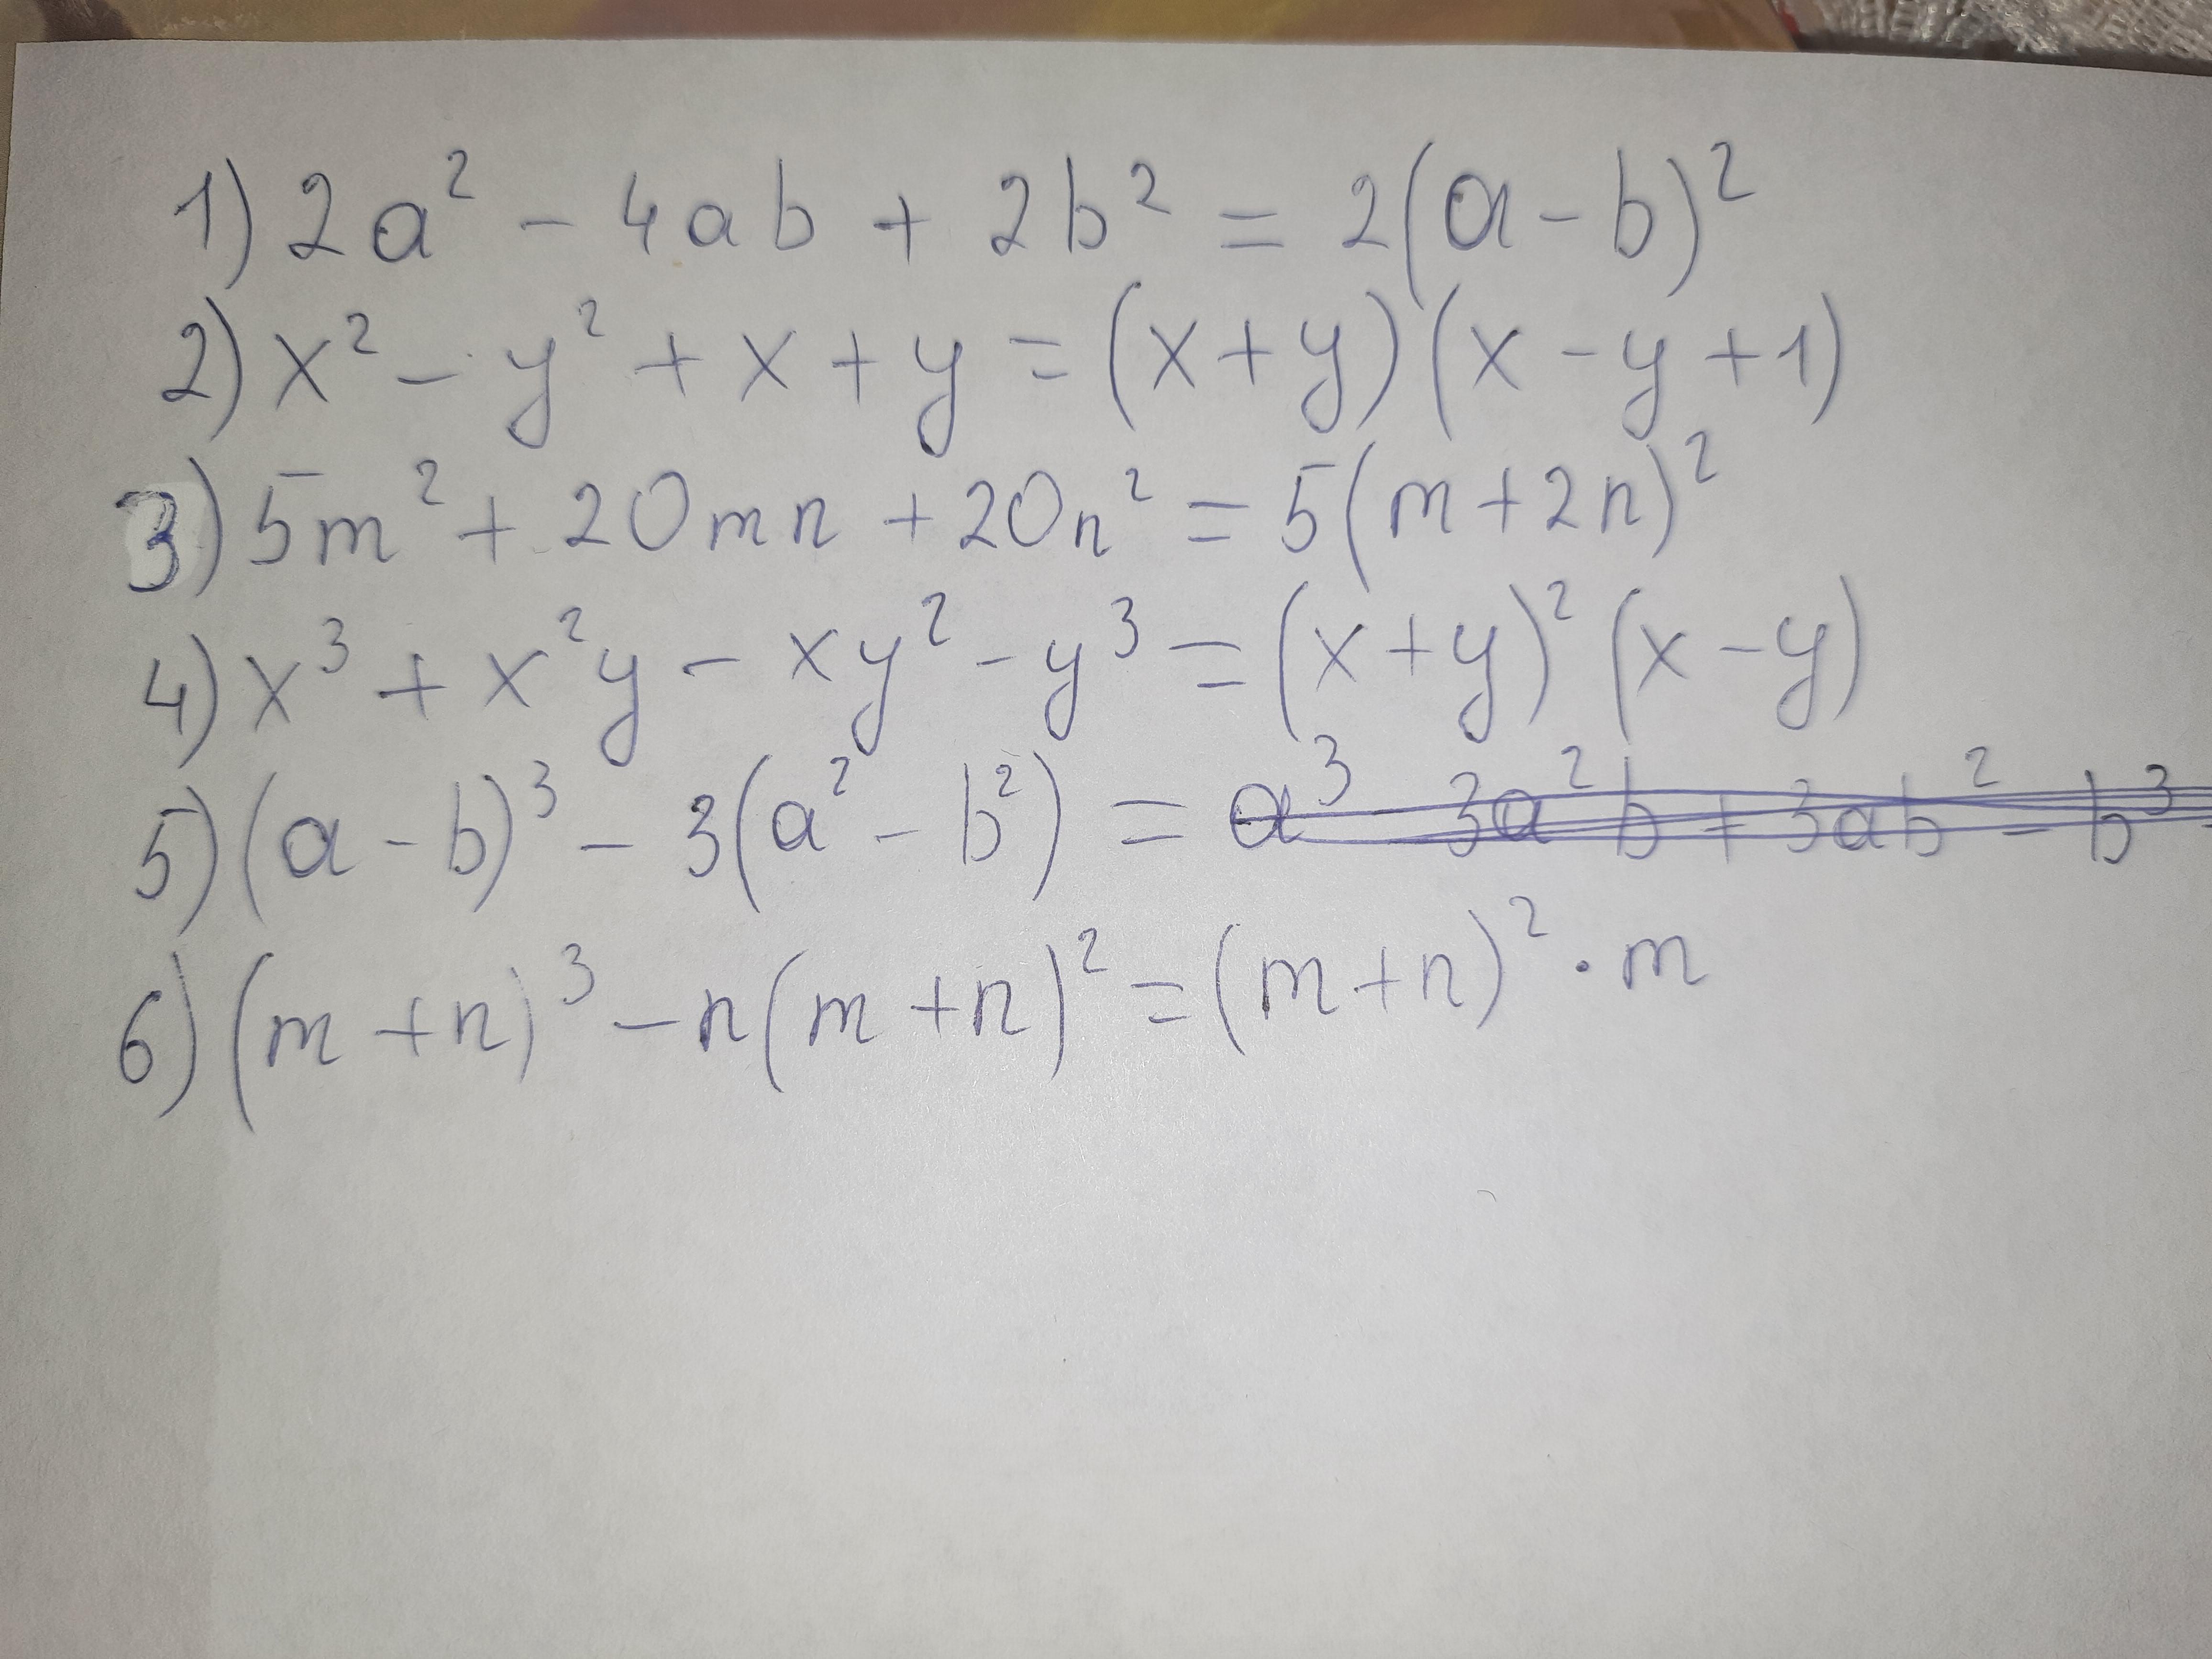 1) 2a² - 4ab + 2b² = 2(a-b)²
2) x² - y² + x + y = (x+y)(x-y+1)
3) 5m² + 20mn + 20n² = 5(m+2n)²
4) x³ + x²y - xy² - y³ = (x+y)²(x-y)
5) (a-b)³ - 3(a² - b²) = a³ 3a²b + 3ab² - b³ -
6) (m+n)³ - n(m+n)² = (m+n)² · m